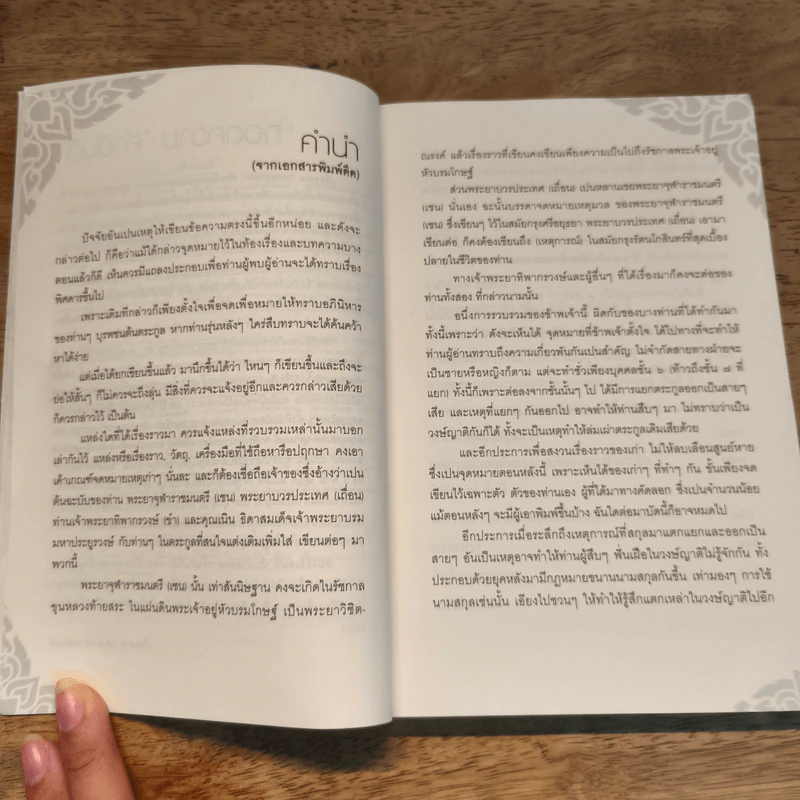 คำนำ
(จากเอกสารพิมพ์ดีด)
ปัจจัยอันเปนเหตุให้เขียนข้อความตรงนี้ขึ้นอีกหน่อย และดังจะ
กล่าวต่อไป ก็คือว่าแม้ได้กล่าวจุดหมายไว้ในท้องเรื่องและบทความบาง
ตอนแล้วก็ดี เห็นควรมีแถลงประกอบเพื่อท่านผู้พบผู้อ่านจะได้ทราบเรื่อง
พิศดารขึ้นไป
เพราะเดิมที่กล่าวก็เพียงตั้งใจเพื่อจดเพื่อหมายให้ทราบอภินิหาร
ของท่านๆ บุรพชนต้นตระกูล หากท่านรุ่นหลังๆ ใคร่สืบทราบจะได้ค้นคว้า
หาได้ง่าย
แต่เมื่อได้ยกเขียนขึ้นแล้ว มานึกขึ้นได้ว่า ไหนๆ ก็เขียนขึ้นและถึงจะ
ย่อให้สั้นๆ ก็ไม่ควรจะถึงลุ่น มีสิ่งที่ควรจะแจ้งอยู่อีกและควรกล่าวเสียด้วย
ก็ควรกล่าวไว้ เป็นต้น
แหล่งใดที่ได้เรื่องราวมา ควรแจ้งแหล่งที่รวบรวมเหล่านั้นมาบอก
เล่ากันไว้ แหล่งหรือเรื่องราว, วัตถุ, เครื่องมือที่ใช้ถือหารือปฤกษา คงเอา
เค้าเกณฑ์จดหมายเหตุเก่าๆ นั่นละ และก็ต้องเชื่อถือเจ้าของซึ่งอ้างว่าเปน
ต้นฉะบับของท่าน พระยาจุฬาราชมนตรี (เชน) พระยาบวรประเทศ (เถื่อน)
ท่านเจ้าพระยาทิพากรวงษ์ (ขำ) และคุณเนิน ธิดาสมเด็จเจ้าพระยาบรม
มหาประยูรวงษ์ กับท่านๆ ในตระกูลที่สนใจแต่งเติมเพิ่มใส่ เขียนต่อๆ มา
พวกนี้
พระยาจุฬาราชมนตรี (เชน) นั้น เท่าสันนิษฐาน คงจะเกิดในรัชกาล
ขุนหลวงท้ายสระ ในแผ่นดินพระเจ้าอยู่หัวบรมโกษฐ์ เป็นพระยาวิชิต-
ณรงค์ แล้วเรื่องราวที่เขียนคงเขียนเพียงความเป็นไปถึงรัชกาลพระเจ้าอยู่
หัวบรมโกษฐ์
ส่วนพระยาบวรประเทศ (เถื่อน) เปนหลานเขยพระยาจุฬาราชมนตรี
(เชน) นั่นเอง ฉะนั้นบรรดาจดหมายเหตุมวล ของพระยาจุฬาราชมนตรี
(เชน) ซึ่งเขียนๆ ไว้ในสมัยกรุงศรีอยุธยา พระยาบวรประเทศ (เถื่อน) เอามา
เขียนต่อ ก็คงต้องเขียนถึง (เหตุการณ์) ในสมัยกรุงรัตนโกสินทร์ที่สุดเบื้อง
ปลายในชีวิตของท่าน
ทางเจ้าพระยาทิพากรวงษ์และผู้อื่นๆ ที่ได้เรื่องมาก็คงจะต่อของ
ท่านทั้งสอง ที่กล่าวนามนั้น
อนึ่งการรวบรวมของข้าพเจ้านี้ ผิดกับของบางท่านที่ได้ทำกันมา
ทั้งนี้เพราะว่า ดังจะเห็นได้ จุดหมายที่ข้าพเจ้าตั้งใจ ได้ไปทางที่จะทำให้
ท่านผู้อ่านทราบถึงความเกี่ยวพันกันเปนสำคัญ ไม่จำกัดสายทางฝ่ายจะ
เป็นชายหรือหญิงก็ตาม แต่จะทำชั่วเพียงบุคคลชั้น ๖ (ท้าวถึงชั้น ๗ ที่
แยก) ทั้งนี้ก็เพราะต่อลงจากชั้นนั้นๆ ไป ได้มีการแยกตระกูลออกเป็นสายๆ
เสีย และเหตุที่แยกๆ กันออกไป อาจทำให้ท่านสืบๆ มา ไม่ทราบว่าเป็น
วงษ์ญาติกันก็ได้ ทั้งจะเป็นเหตุทำให้ล่มเผ่าตระกูลเดิมเสียด้วย
และอีกประการเพื่อสงวนเรื่องราวของเก่า ไม่ให้ลบเลือนสูนย์หาย
ซึ่งเปนจุดหมายตอนหลังนี้ เพราะเห็นได้ของเก่าๆ ที่ทำๆ กัน ชั้นเพียงจด
เขียนไว้เฉพาะตัว ตัวของท่านเอง ผู้ที่ได้มาทางคัดลอก ซึ่งเปนจำนวนน้อย
แม้ตอนหลังๆ จะมีผู้เอาพิมพ์ขึ้นบ้าง ฉันใดต่อมาบัดนี้ก็อาจหมดไป
อีกประการเมื่อระลึกถึงเหตุการณ์ที่สกุลมาแตกแยกและออกเป็น
สายๆ อันเป็นเหตุอาจทำให้ท่านผู้สืบๆ ฟั่นเฝือในวงษ์ญาติไม่รู้จักกัน ทั้ง
ประกอบด้วยยุคหลังมามีกฎหมายขนานนามสกุลกันขึ้น เท่ามองๆ การใช้
นามสกุลเช่นนั้น เอียงไปชวนๆ ให้ทำให้รู้สึกแตกเหล่าในวงษ์ญาติไปอีก